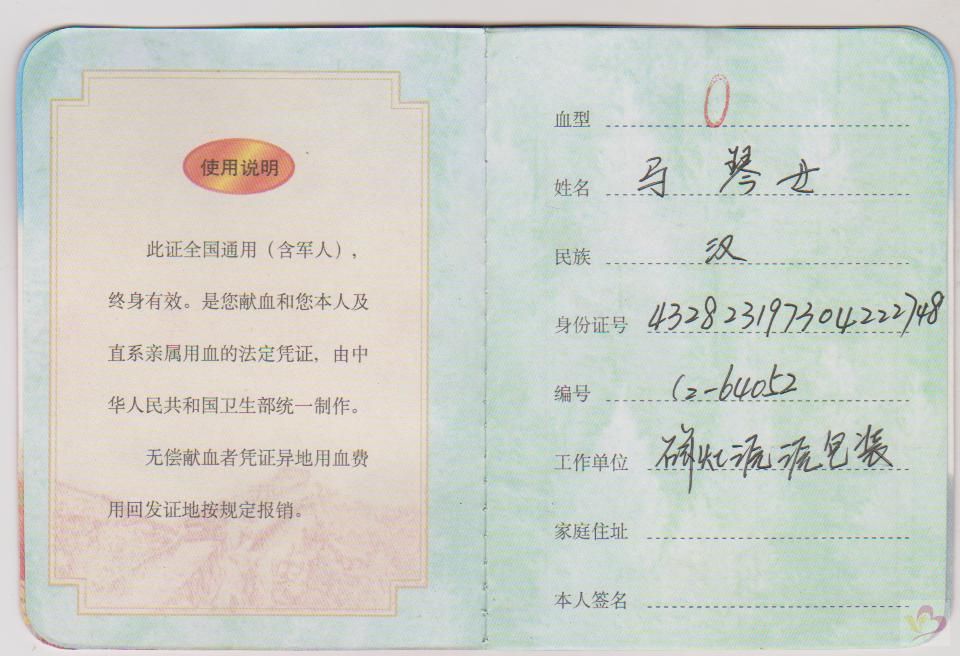 使用说明
此证全国通用（含军人），
终身有效。是您献血和您本人及
直系亲属用血的法定凭证，由中
华人民共和国卫生部统一制作。
无偿献血者凭证异地用血费
用回发证地按规定报销。
血型 O
姓名 马琴
民族 汉
身份证号 432823197304222748
编号 C2-64052
工作单位 磁灶 包装
家庭住址
本人签名